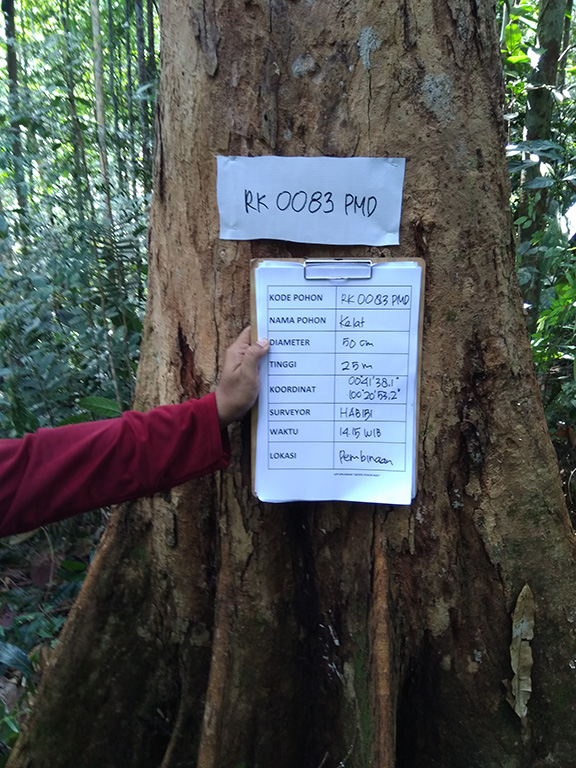 RK 0083 PMD
KODE POHON RK 0083 PMD
NAMA POHON Kelat
DIAMETER 50 cm
TINGGI 25 m
KOORDINAT 00°41'38.1" 100°20'53.2"
SURVEYOR HABIBI
WAKTU 14.15 WIB
LOKASI Pembinaan